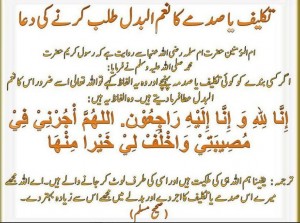 تکلیف یا صدمے کا نعم البدل طلب کرنے کی دعا
ام المؤمنین حضرت ام سلمہ رضی اللہ عنہا سے روایت ہے کہ رسول کریم حضرت
محمد صلی اللہ علیہ وسلم نے فرمایا:
اگر کسی بندے کو کوئی تکلیف یا صدمہ پہنچے اور وہ یہ الفاظ کہے تو اللہ تعالی اسے ضرور اس کا نعم
البدل عطا فرما دیتے ہیں۔ وہ الفاظ یہ ہیں:
إِنَّا لِلّٰهِ وَ إِنَّا إِلَيْهِ رَاجِعُوْنَ. اَللّٰهُمَّ أْجُرْنِيْ فِيْ
مُصِيبَتِيْ وَاخْلُفْ لِيْ خَيْرًا مِنْهَا
ترجمہ: یقیناً ہم اللہ ہی کی ملکیت ہیں اور اسی کی طرف لوٹ کر جانے والے ہیں۔ اے اللہ مجھے
میرے اس صدمے یا تکلیف کا اجر دے اور بدلے میں مجھے اس سے زیادہ بہتر دے۔
(صحیح مسلم)